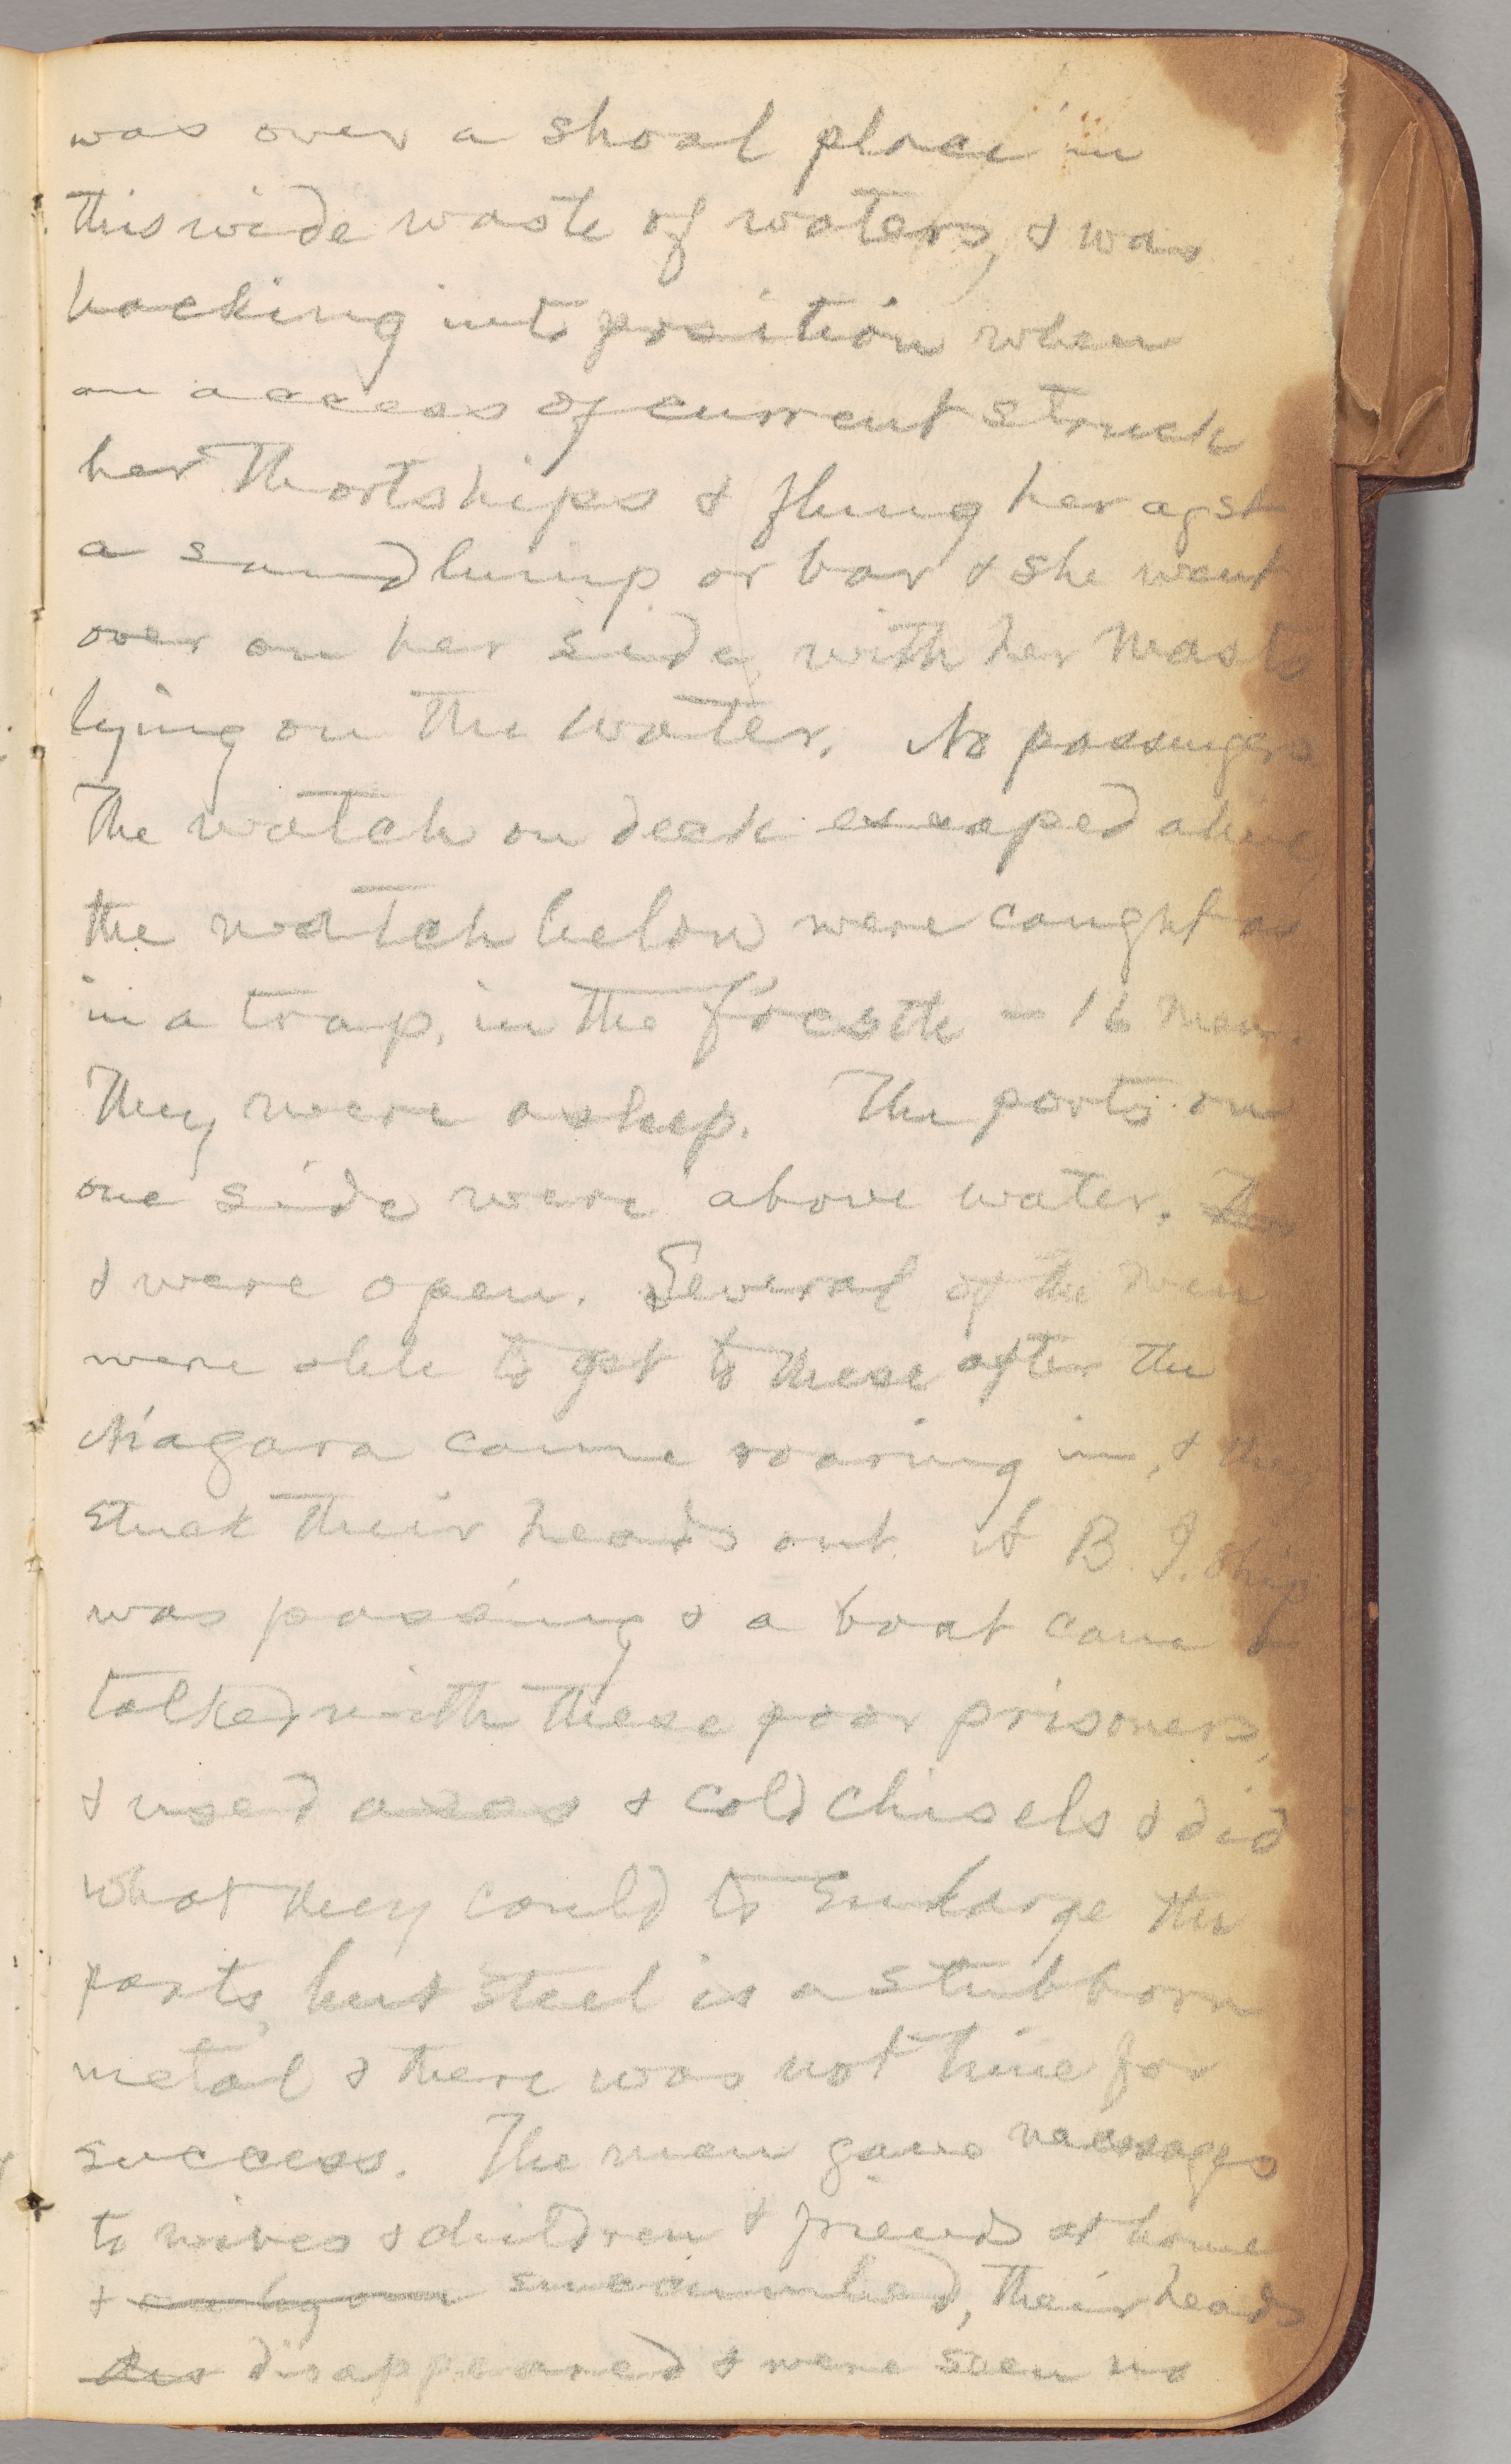 was over a shoal place in
this wide waste of waters, & was
backing into position when
an access of current struck
her thortships & flung her agst
a sand lump or bar & she went
over on her side, with her masts
lying on the water. No passengers
The watch on deck escaped alive,
the watch below were caught as
in a trap, in the f'castle — 16 men.
They were asleep. The ports on
one side were above water.
& were open. Several of the men
were able to get to these after the
Niagara came roaring in, & they
stuck their heads out. A B. I. ship
was passing & a boat came &
talked with these poor prisoners,
& used axes & cold chisels & did
what they could to enlarge the
ports, but steel is a stubborn
metal & there was not time for
success. The men gave messages
to wives & children & friends at home
& one by one succumbed, their heads
dis disappeared & were seen no